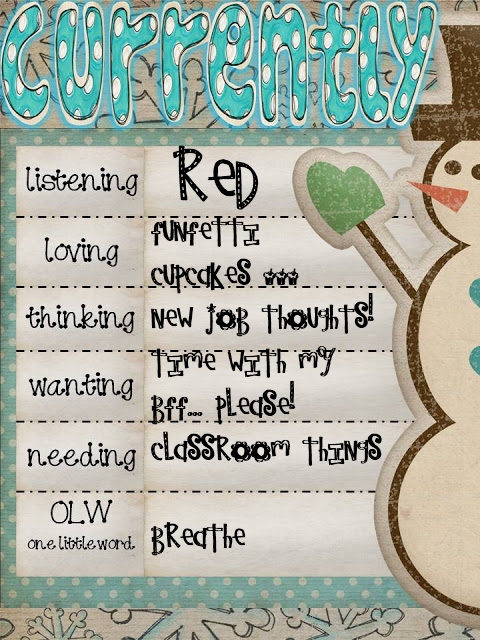 currently
listening
Red
loving
funfetti
cupcakes
thinking
new job thoughts!
wanting
time with my
bff... please!
needing
classroom things
OLW
one little word
Breathe